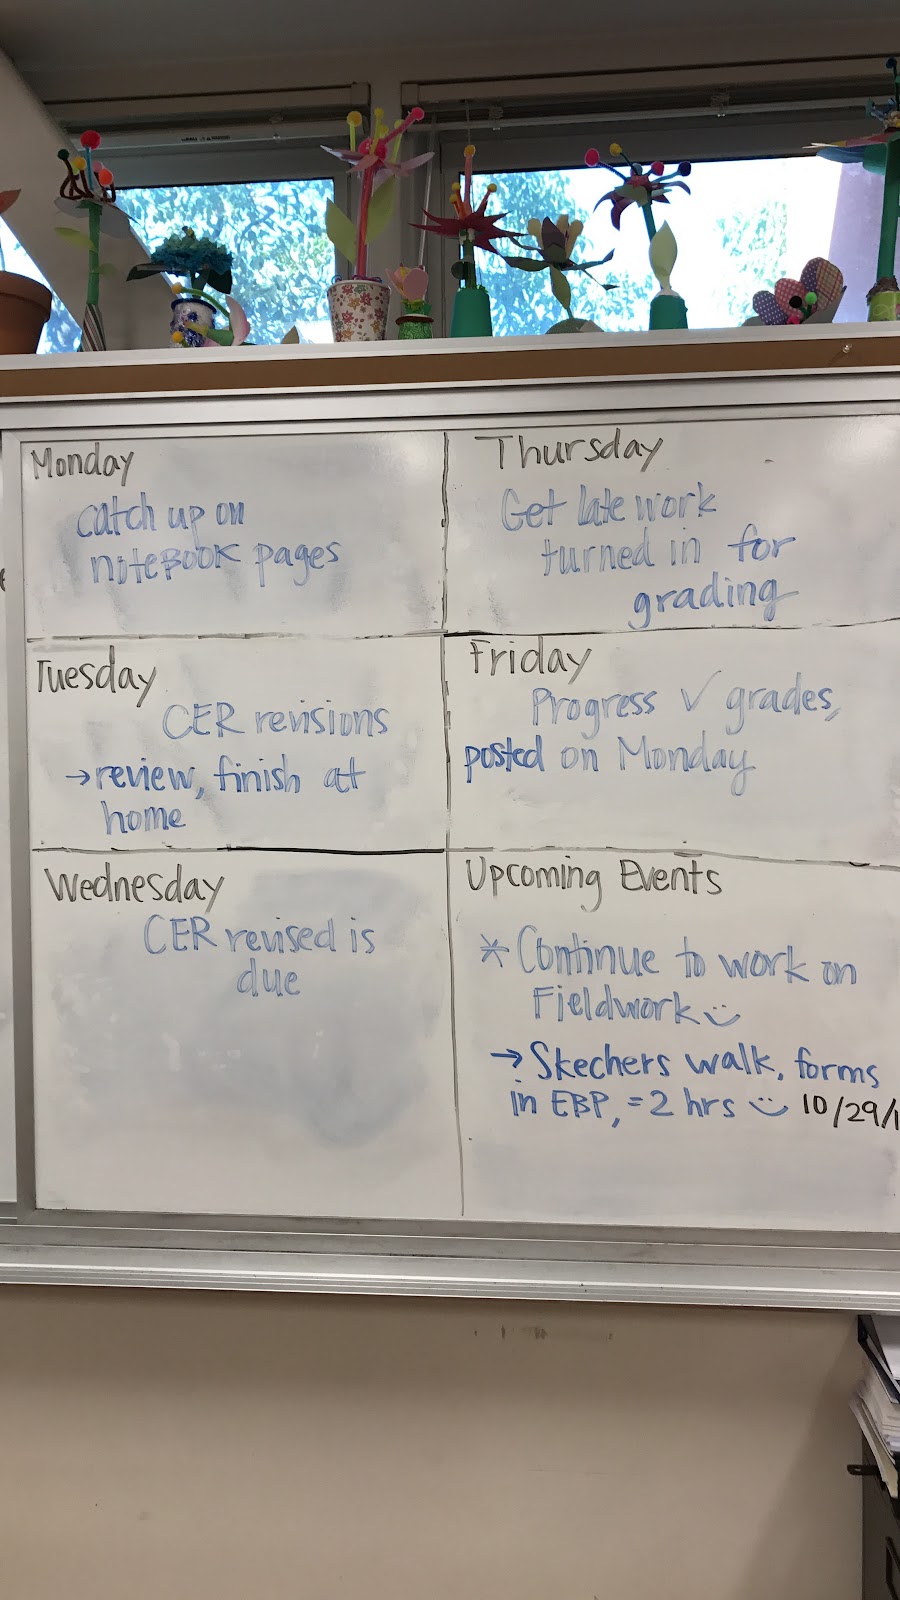 Monday
catch up on
noteBOOK pages
Tuesday
CER revisions
→ review, finish at
home
Wednesday
CER revised is
due
Thursday
Get late work
turned in for
grading
Friday
Progress ✓ grades,
posted on Monday
Upcoming Events
* Continue to work on
Fieldwork :)
→ Skechers walk, forms
in EBP, = 2 hrs :) 10/29/1